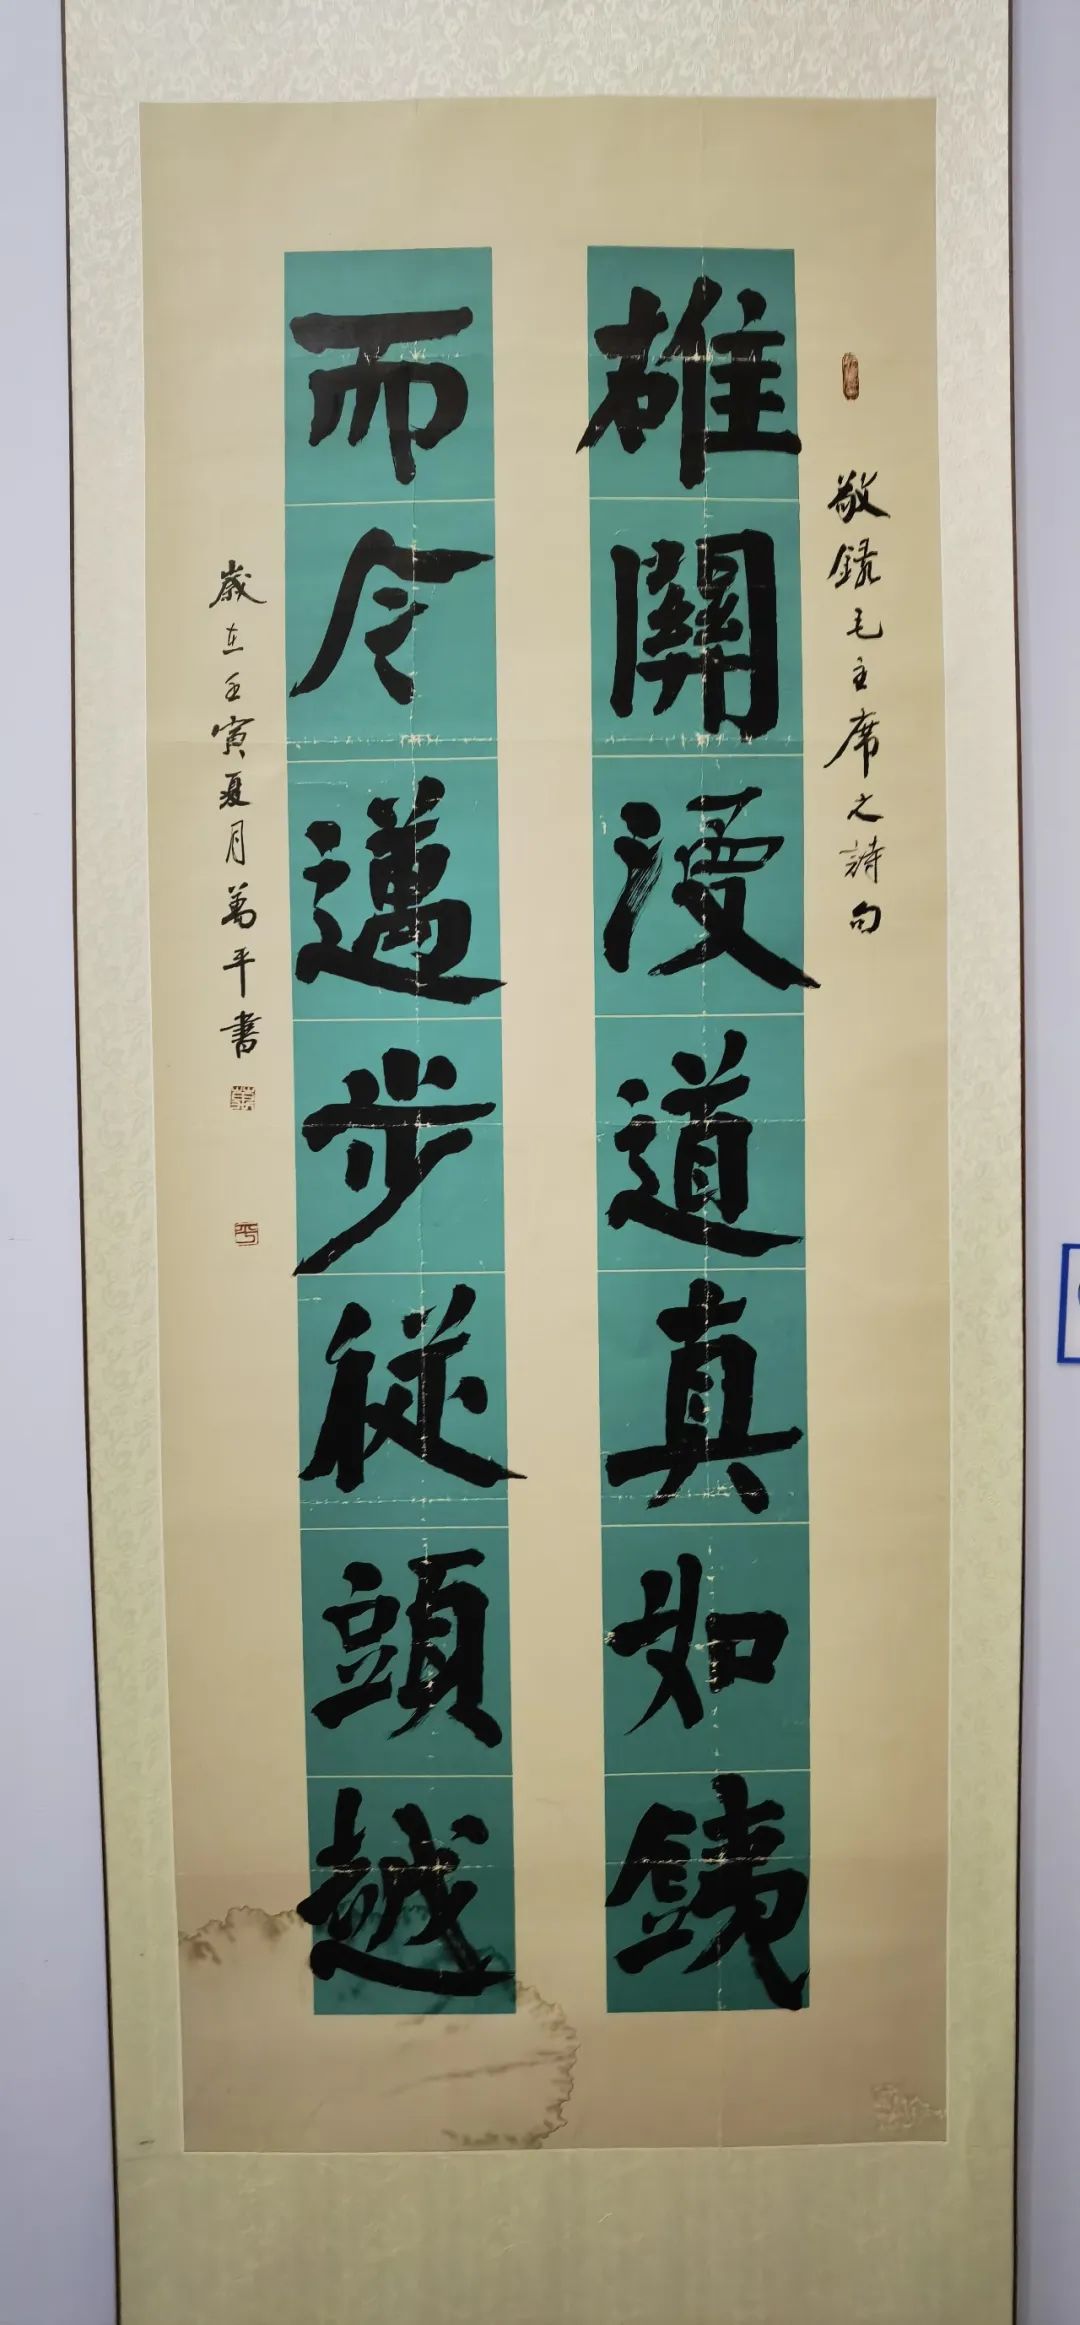 敬録毛主席之詩句
雄關漫道真如銕
而今邁步從頭越
歲在壬寅夏月萬平書
平